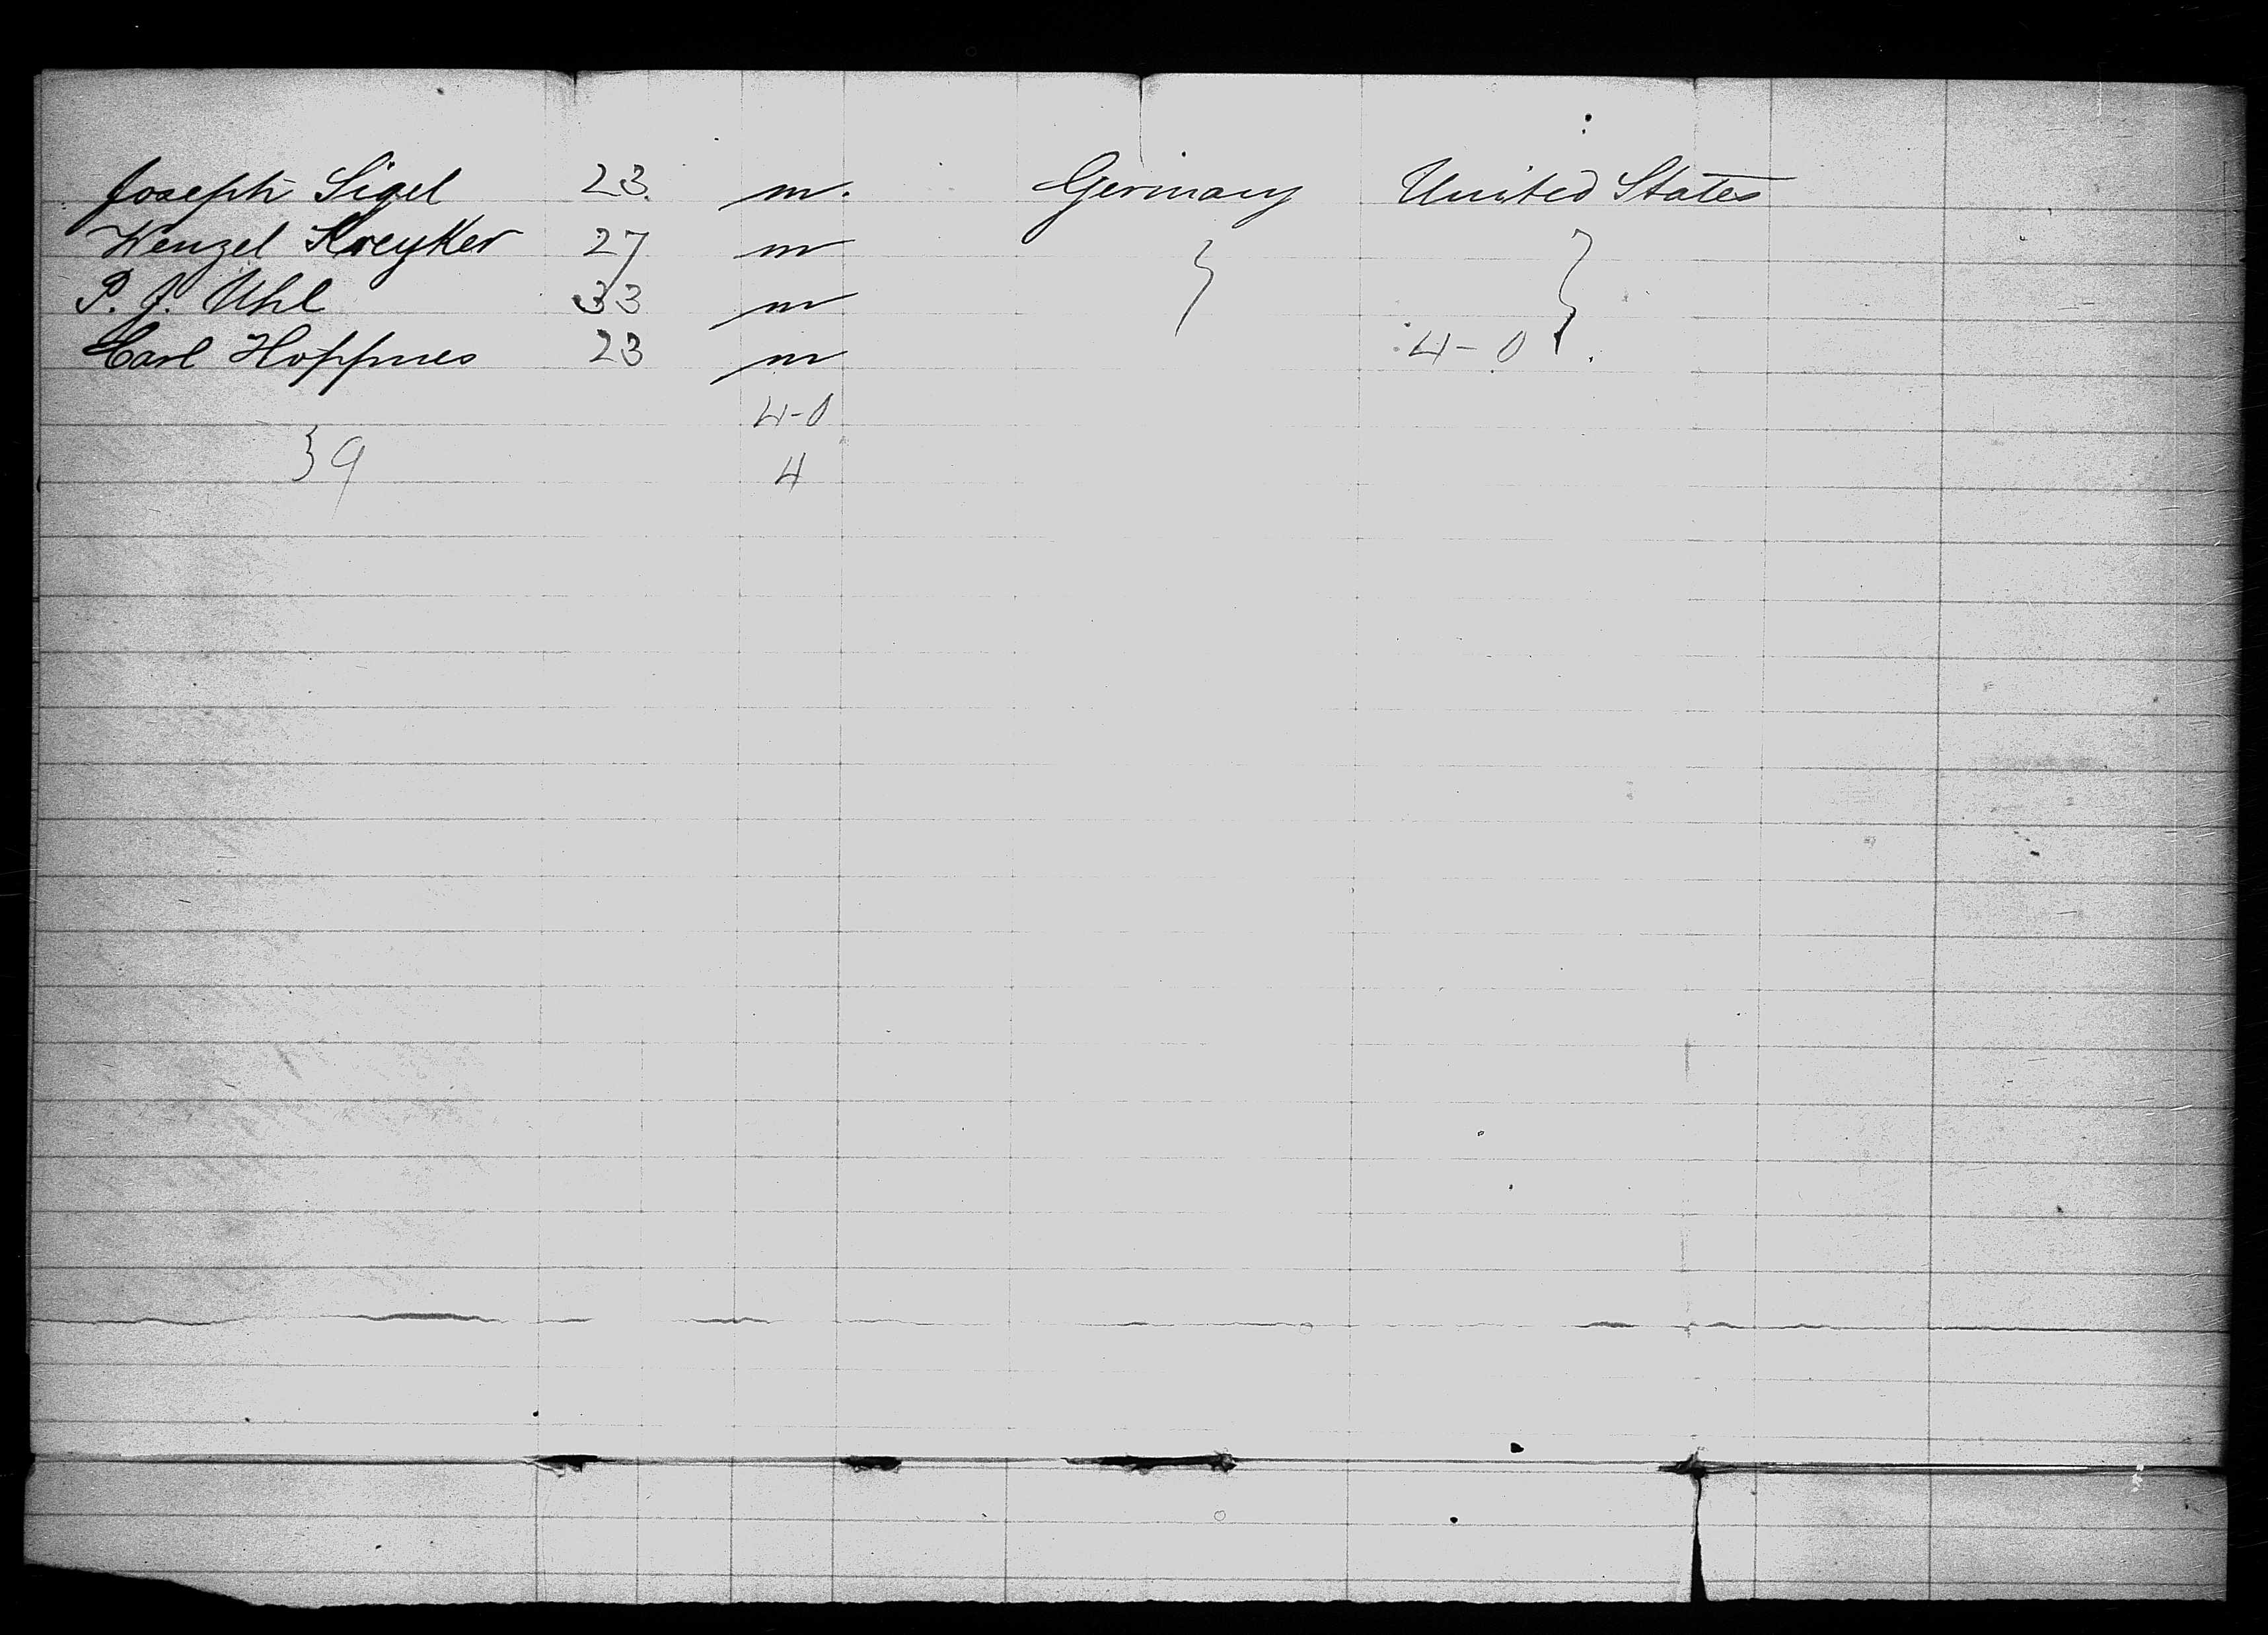 Joseph Sigel 23. m. Germany United States
Wenzel Kreyker 27 m } }
P. J. Uhl 33 m
Carl Hoppnes 23 m 4-0
4-0
} 9 4